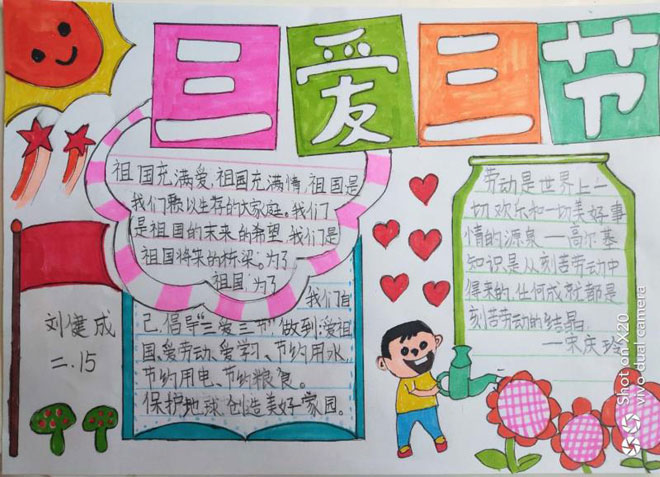 三爱三节
祖国充满爱，祖国充满情，祖国是
我们赖以生存的大家庭。我们
是祖国的未来的希望，我们是
祖国将来的栋梁。为了
祖国，为了
我们自
己，倡导“三爱三节”做到：爱祖
国、爱劳动、爱学习、节约用水、
节约用电、节约粮食。
保护地球，创造美好家园。
刘健成
二.15
劳动是世界上一
切欢乐和一切美好事
情的源泉——高尔基
知识是从刻苦劳动中
得来的，任何成就都是
刻苦劳动的结晶。
——宋庆玲
Shot on X20
vivo dual camera